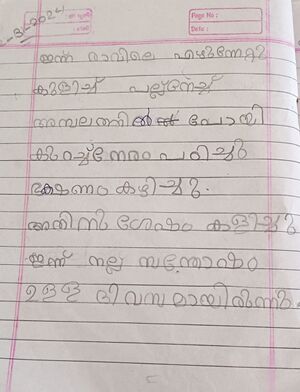 Page No :
Date :
-3-2024
ഇന്ന് രാവിലെ എഴുന്നേറ്റു
കുളിച്ച് പല്ല്തേച്ച്
അമ്പലത്തിൽ പോയി
കുറച്ച്നേരം പഠിച്ചു
ഭക്ഷണം കഴിച്ചു.
അതിനു ശേഷം കളിച്ചു
ഇന്ന് നല്ല സന്തോഷം
ഉള്ള ദിവസമായിരുന്നു.